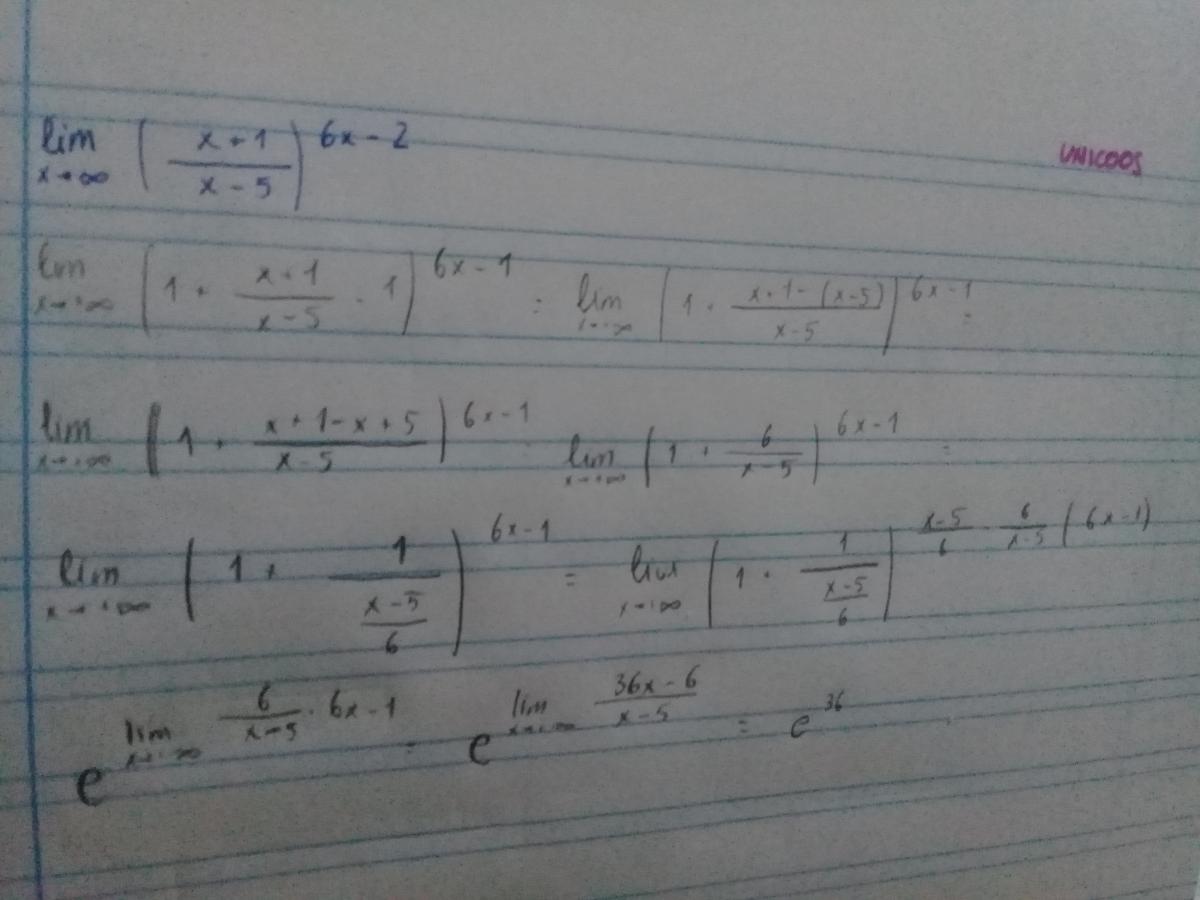 lim x→∞ ( (x+1)/(x-5) )^(6x-2)
UNICOOS
lim x→+∞ ( 1 + (x+1)/(x-5) - 1 )^(6x-1) = lim x→+∞ ( 1 + (x+1-(x-5))/(x-5) )^(6x-1) =
lim x→+∞ ( 1 + (x+1-x+5)/(x-5) )^(6x-1) lim x→+∞ ( 1 + 6/(x-5) )^(6x-1) =
lim x→+∞ ( 1 + 1/((x-5)/6) )^(6x-1) = lim x→+∞ ( 1 + 1/((x-5)/6) )^((x-5)/6 · 6/(x-5) (6x-1))
e^(lim x→+∞ 6/(x-5) · 6x-1) = e^(lim x→+∞ (36x-6)/(x-5)) = e^36